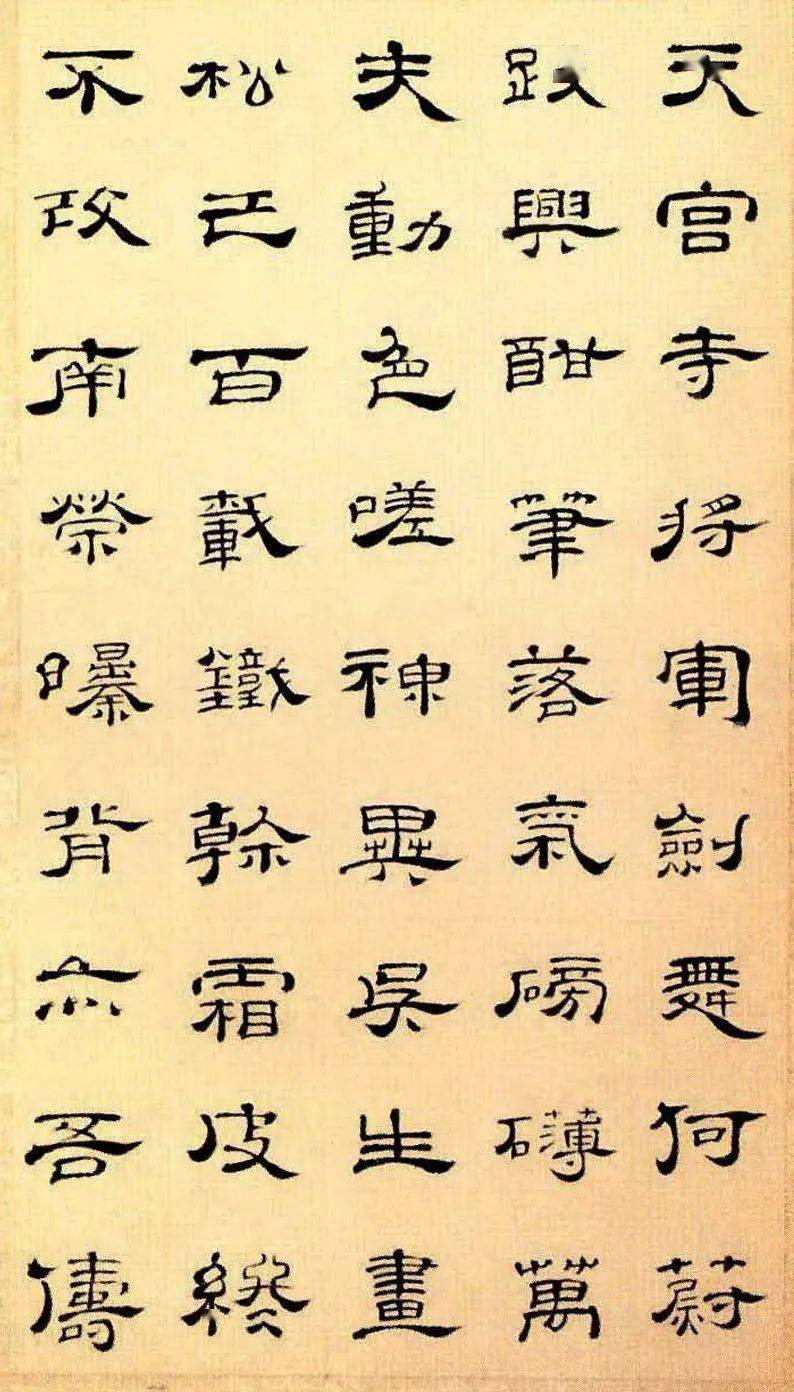 天宫寺将軍劍舞何蔚
跂興酣筆落氣磅礴萬
夫動色嗟神異吳生畫
松已百載鐵幹霜皮終
不改南榮曝背亦吾儔